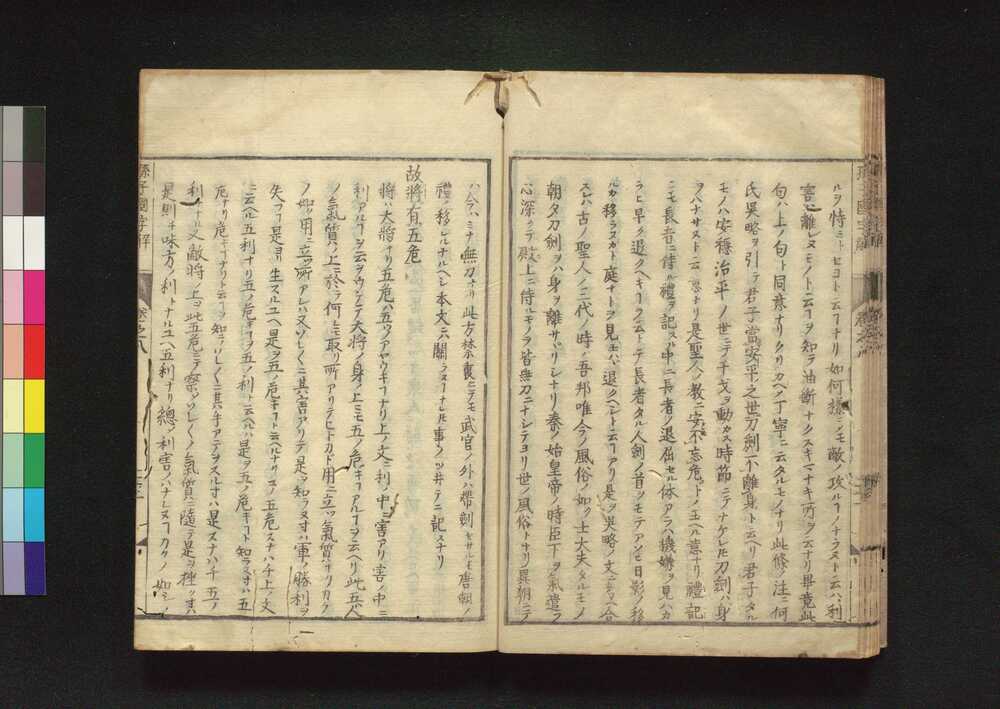 ルヲ恃ミトセヨト云フヿナリ如何樣ニモ敵ノ攻ルヿノナラヌト云ハ利
害ヲ離レヌモノト云フヿヲ知ラ油斷ナクスキマナキ所ヲ云ナリ畢竟此
句ハ上ノ句ト同意ナリクリカヘシ丁寧ニ云タルモノナリ此條ノ注ニ何
氏吳略ヲ引テ君子當安平之世刀劍不離身ト云ヘリ君子タル
モノハ安穩治平ノ世ニテ干戈ヲ動カス時節ニテナケレ𪜈刀劍ハ身
ヲハナサヌト云フ意ナリ是聖人ノ教ニ安不忘危トノ玉ヘル意ナリ禮記
ニモ長者ニ侍ル禮ヲ記スル中ニ長者ノ退屈セル体アラハ機嫌ヲ見ハカ
ラヒ早ク退クヘキヿヲ云トテ長者タル人劍ノ首ヲモテアソヒ日影ノ移
ルカ移ラヌカト庭ナトヲ見モハ退クヘシト云フヿアリ是ヲ吳略ノ文ニ引合
スレハ古ノ聖人ノ三代ノ時ノ吾邦唯今ノ風俗ノ如ク士大夫タルモノ
朝夕刀劍ヲハ身ヲ離サヾリシナリ秦ノ始皇帝ノ時臣下ヲ氣遣フ
心深クテ殿上ニ侍ルモノヲ皆無刀ニナシテヨリ世ノ風俗トナリ異朝ニテ
ハ今ハミナ無刀ナリ此方禁裏ニテモ武官ノ外ハ帶劍セサルモ唐朝ノ
禮ノ移レルナルヘシ本文ニ關ラヌヿナレ𪜈事ノツ井テニ記スナリ
故將有五危
將ハ大將ナリ五危ハ五ツノアヤウキヿナリ上ノ文ニ利ノ中ニ害アリ害ノ中ニ
利アルヿヲ云ヲウケテ大將ノ身ノ上ニモ五ノ危キヿアルヿヲ云ヘリ此五ハ人
ノ氣質ノ上ニ於テ何レモ取リ所アリテヒトカド用ニ立ツ氣質ナリカク
ノ如ク用ニ立ツ所アレハ又ソレ〱ニ其害アリテ是ヲ知ラヌ寸ハ軍ノ勝利ヲ
失フヿ是ヨリ生スルユヘ是ヲ五ノ危キヿト云ヘルナリ五危スナハチ上ノ文
ニ云ヘル五利ナリ五ノ危キヿヲ五ノ利ト云ヘルハ是ヲ五ノ危キヿト知ラヌ寸ハ五
危ナリ危キヿナリト云フヿヲ知テソレ〱ニ其ハ手アテヲスル寸ハ是スナハチ五ノ
利トナルナリ又敵將ノ上ヲ此五危ニテ察シソレ〱ノ氣質ニ隨テ是ヲ挫ク寸ハ
是則チ味方ノ利トナルユヘ五利ナリ總ノ利害ノハナレヌヿカクノ如シ
孫子國字解
卷之八